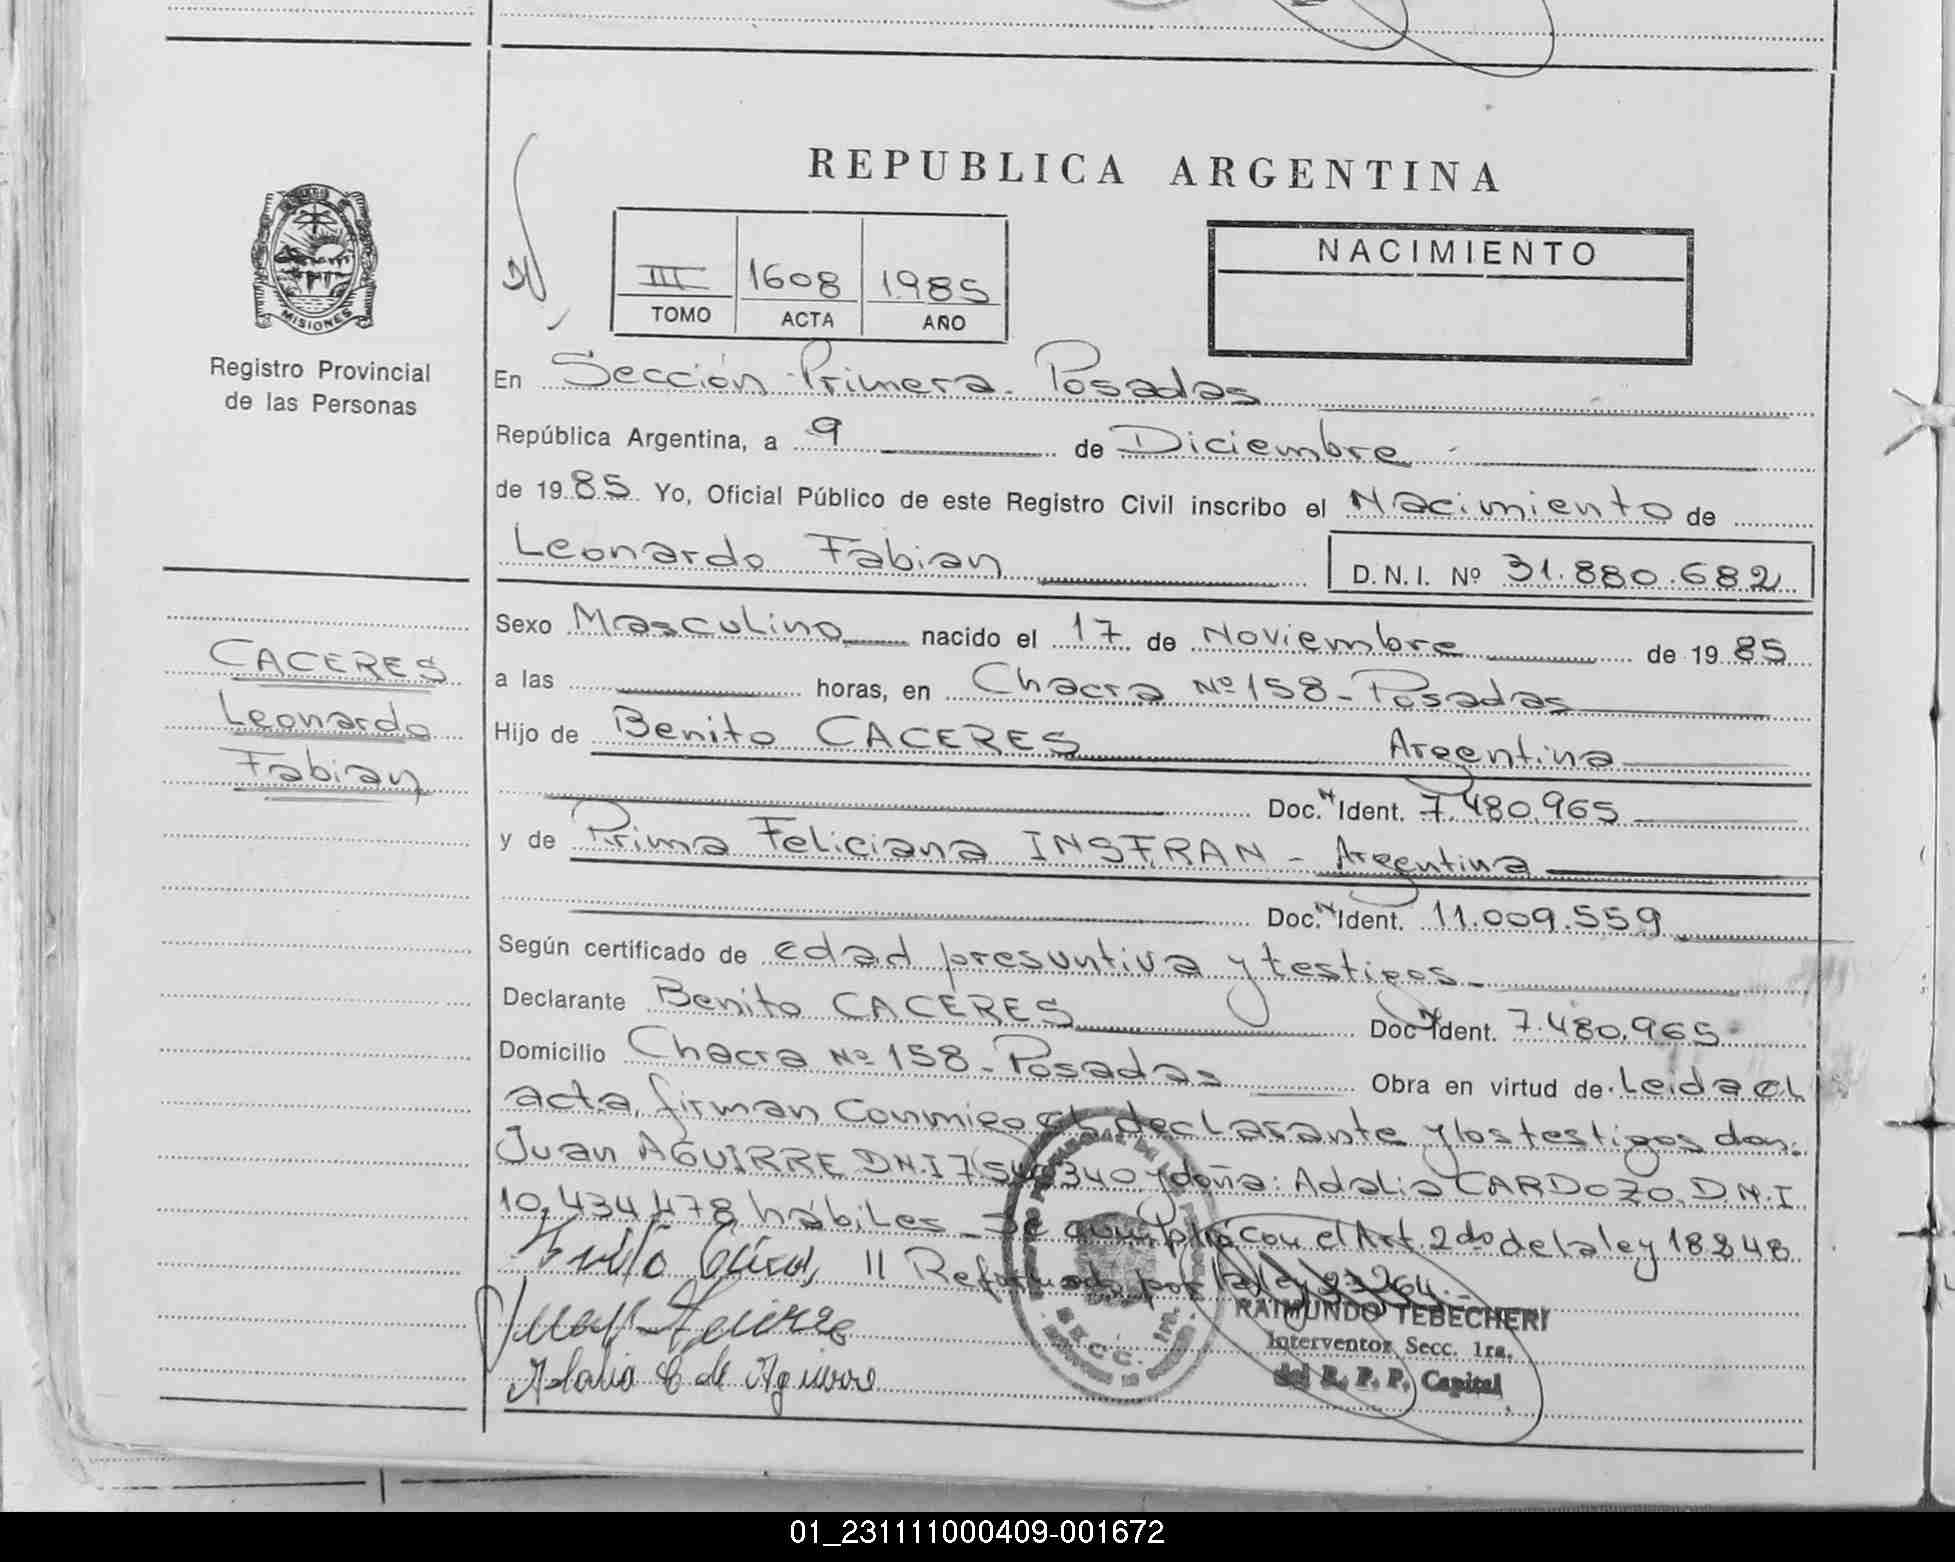 REPUBLICA ARGENTINA
III 1608 1985
TOMO ACTA AÑO
NACIMIENTO
MISIONES
Registro Provincial
de las Personas
En Sección Primera. Posadas
República Argentina, a 9 de Diciembre
de 1985 Yo, Oficial Público de este Registro Civil inscribo el Nacimiento de
Leonardo Fabian D.N.I. Nº 31.880.682
Sexo Masculino nacido el 17 de Noviembre de 1985
a las horas, en Chacra Nº 158 - Posadas
Hijo de Benito CACERES Argentina
Doc. Ident. 7.480.965
y de Prima Feliciana INSFRAN - Argentina
Doc. Ident. 11.009.559
Según certificado de edad presuntiva y testigos -
Declarante Benito CACERES Doc. Ident. 7.480.965
Domicilio Chacra Nº 158 - Posadas Obra en virtud de Leida el
acta, firman conmigo el declarante y los testigos don:
Juan AGUIRRE D.N.I y doña: Adalia CARDOZO. D.N.I
10.434.478 hábiles - Se cumplió con el Art. 2do de la ley 18248
II Reformado por la ley
CACERES
Leonardo
Fabian
RAIMUNDO TEBECHERI
Interventor Secc. 1ra.
del R. P. P. Capital
Adalia C de Aguirre
01_231111000409-001672